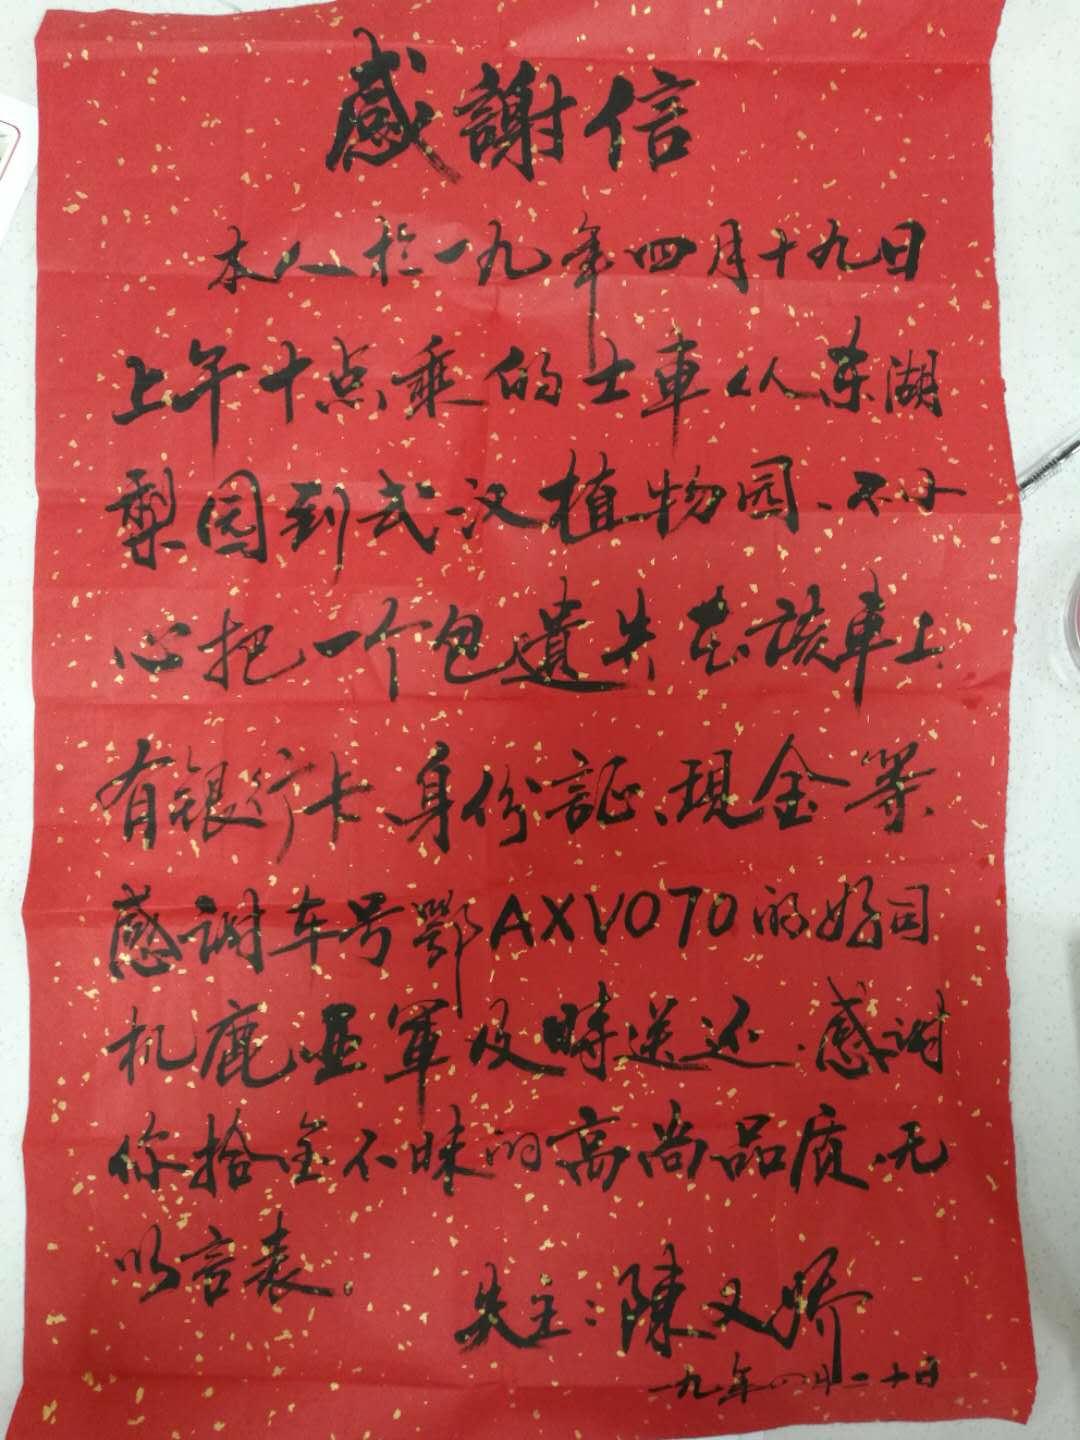 感謝信
本人於一九年四月十九日
上午十点乘的士車从东湖
梨园到武汉植物园、不小
心把一个包遺失在该車上、
有银行卡、身份証、現金等、
感谢车号鄂AXV070的好司
机鹿亚軍及時送还、感谢
你拾金不昧的高尚品质、无
以言表。
失主:陳又骄
一九年四月二十日